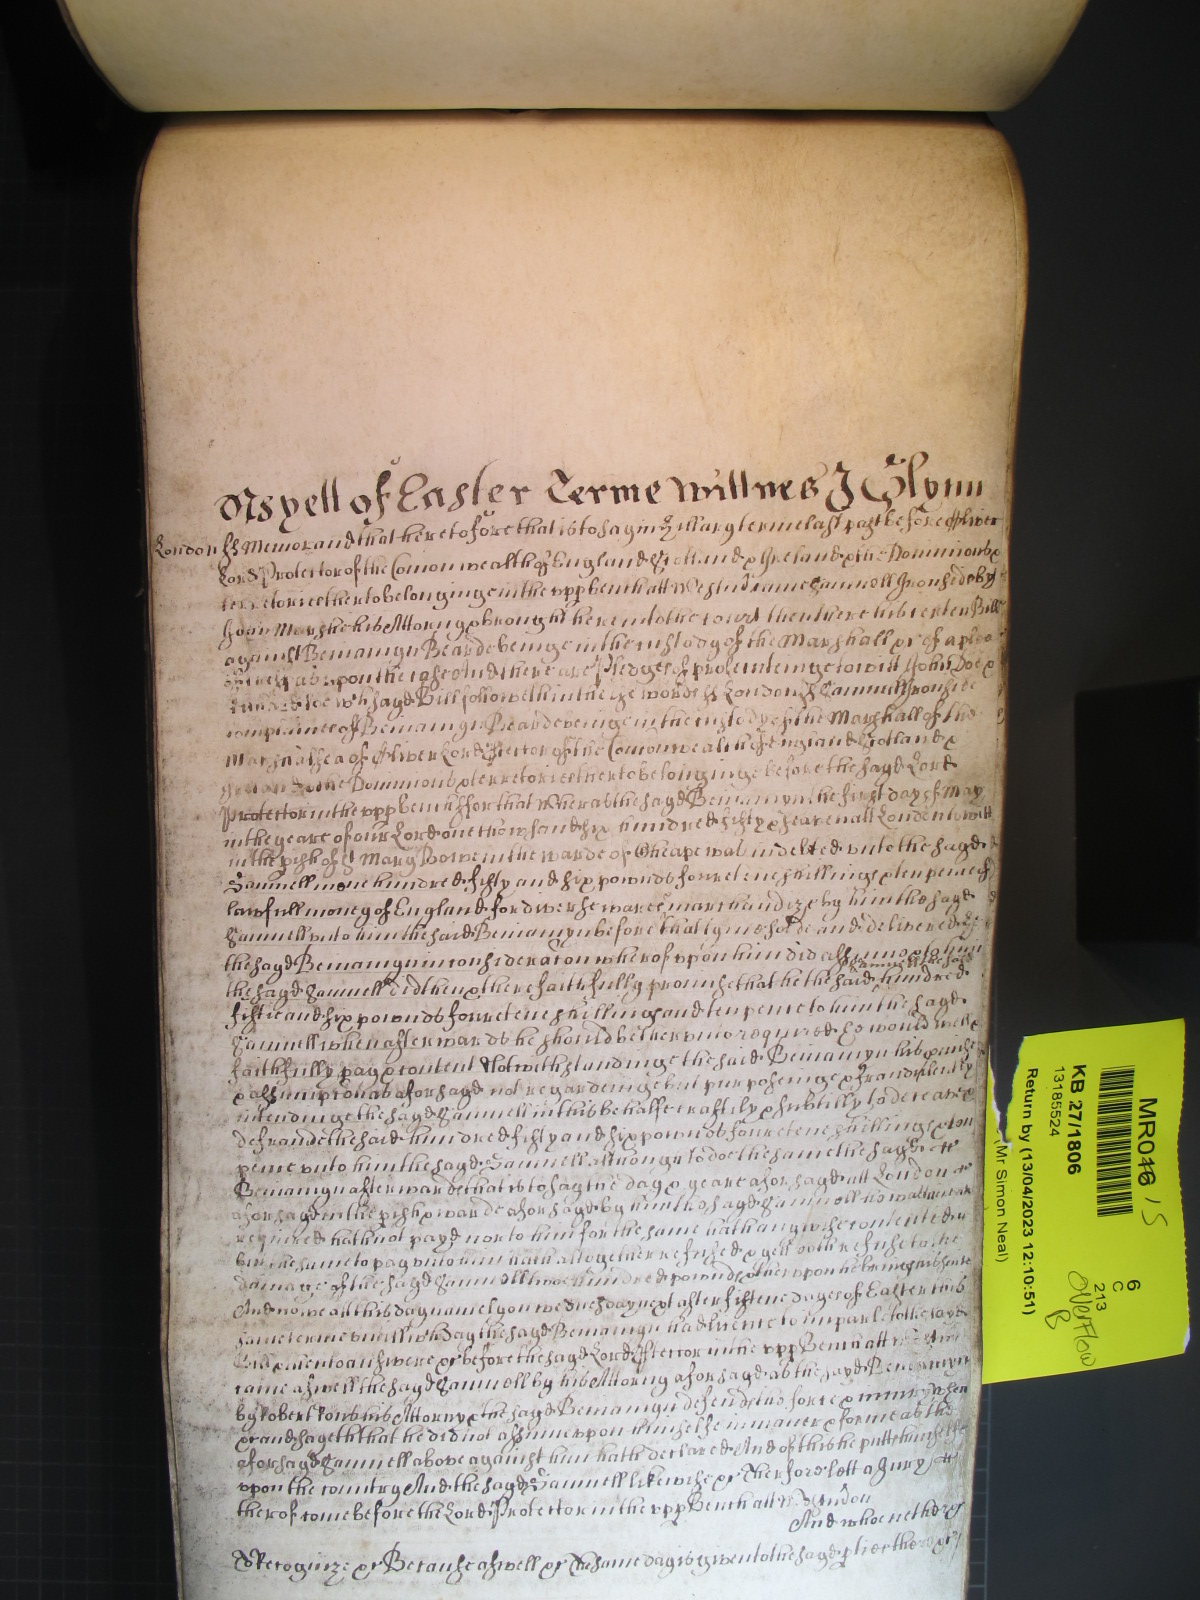 As yett of Easter Terme Wittnes J Glynn
London ss Memorand that heretofore that is to say in Hillary terme last past before Oliver
Lord Protector of the Comonwealth of England Scotland & Ireland & the Dominions &
territories thereto belonginge in the upp bench att Westm came Samuell Ironside by
John Marshe his Attorny & brought here into the Court then there his certen Bill
against Beniamyn Bearde beinge in the custody of the Marshall &c of a plea
of tresp upon the case And there are Pledges of prosecuteinge to witt John Doe &
Richard Roe wch sayd Bill followeth in these words ss London ss Samuell Ironside
complaines of Beniamyn Bearde beinge in the custodye of the Marshall of the
Marshalsea of Oliver Lord Ptector of the Comonwealth of England Scotland &
Ireland & the Dominions & territories thereto belonginge before the sayd Lord
Protector in the upp bench ffor that Whereas the sayd Beniamyn the first day of May
in the yeare of our Lord one thowsand six hundred fifty & seaven att London to witt
in the pish of St Mary Bowe in the warde of Cheape was indebted unto the sayd
Samuell in one hundred fifty and six pownds fourteene shillings & ten pence of
lawfull money of England for diverse wares & marchandize by him the sayd
Samuell unto him the said Beniamyn before that tyme sold and delivered &
the sayd Beniamyn in consideracon wherof upon himselfe did assume & to him
the sayd Samuell did then & there faithfully promise that he the said hundred
fiftie and six pownds fourteene shillings and ten pence to him the sayd
Samuell when afterwards he should be therunto required Co would well &
faithfully pay & content Notwithstandinge the said Beniamyn his pmise
& assumption as aforsayd not regardeinge but purposeinge & fraudulently
intendinge the sayd Samuell in this behalfe craftily & subtilly to deceave &
defraude the said hundred fifty and six pownds fourteene shillings & ten
pence unto him the sayd Samuell accordinge to doe the same the sayd
Beniamyn afterwards that is to say the day & yeare aforsayd att London &c
aforsayd in the pish & warde aforsayd by him the sayd Samuell
required hath not payd nor to him for the same hath any wise contented
but the same to pay unto him hath altogether refused & yett doth refuse to the
damage of the sayd Samuell two hundred pownds & therupon he brings his suite
And now att this day namely on wednesday next after fifteene dayes of Easter this
same terme untill wch day the sayd Beniamyn had licence to imparle to the sayd
Bill & then to answere &c before the sayd Lord Ptector in the upp Bench att Westm
came aswell the sayd Samuell by his Attorny aforsayd as the sayd Beniamyn
by Robert his Attorny & the sayd Beniamyn defends the force & iniury when
&c and sayeth that he did not assume upon himselfe in maner & forme as the
aforsayd Samuell above against him hath declared And of this he putts himselfe
upon the country And the sayd Samuell likewise &c Therfore lett a Jury
therof come before the Lord Protector in the upp Bench att Westm on
And whoe neither &c
To Recognize &c Because aswell &c The same day is given to the sayd pties there &c
MR046 / S
KB 27/1806
13185524
Return by (13/04/2023 12:10:51)
(Mr Simon Neal)
6
C
213
Overflow
B